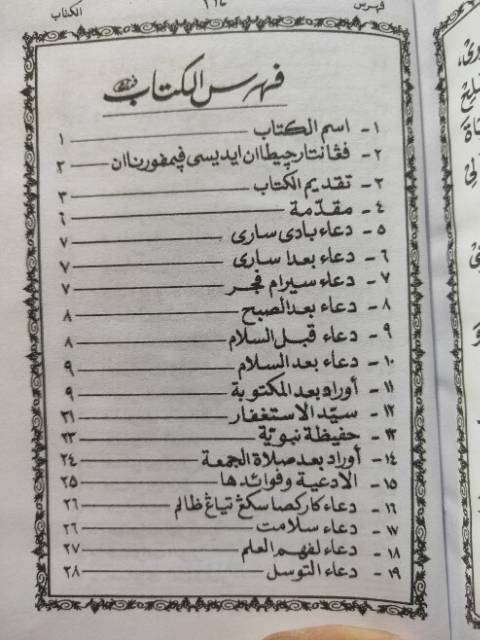 فهرس ١١٤ الكتاب
فهرس الكتاب
١- اسم الكتاب ١
٢- فڠانتار چيطاان ايديسي ڤيمفورنا ان ٢
٣- تقديم الكتاب ٣
٤- مقدّمة ٦
٥- دعاء بادى سارى ٧
٦- دعاء بعدا سارى ٧
٧- دعاء سيرام فجر ٧
٨- دعاء بعد الصبح ٨
٩- دعاء قبل السلام ٨
١٠- دعاء بعد السلام ٩
١١- أوراد بعد المكتوبة ٩
١٢- سيّد الاستغفار ٢١
١٣- حفيظة نبويّة ٢٣
١٤- أوراد بعد صلاة الجمعة ٢٤
١٥- الادعية وفوائدها ٢٥
١٦- دعاء كاركصا سكڠ تياڠ ظالم ٢٦
١٧- دعاء سلامت ٢٦
١٨- دعاء لفهم العلم ٢٧
١٩- دعاء التوسل ٢٨